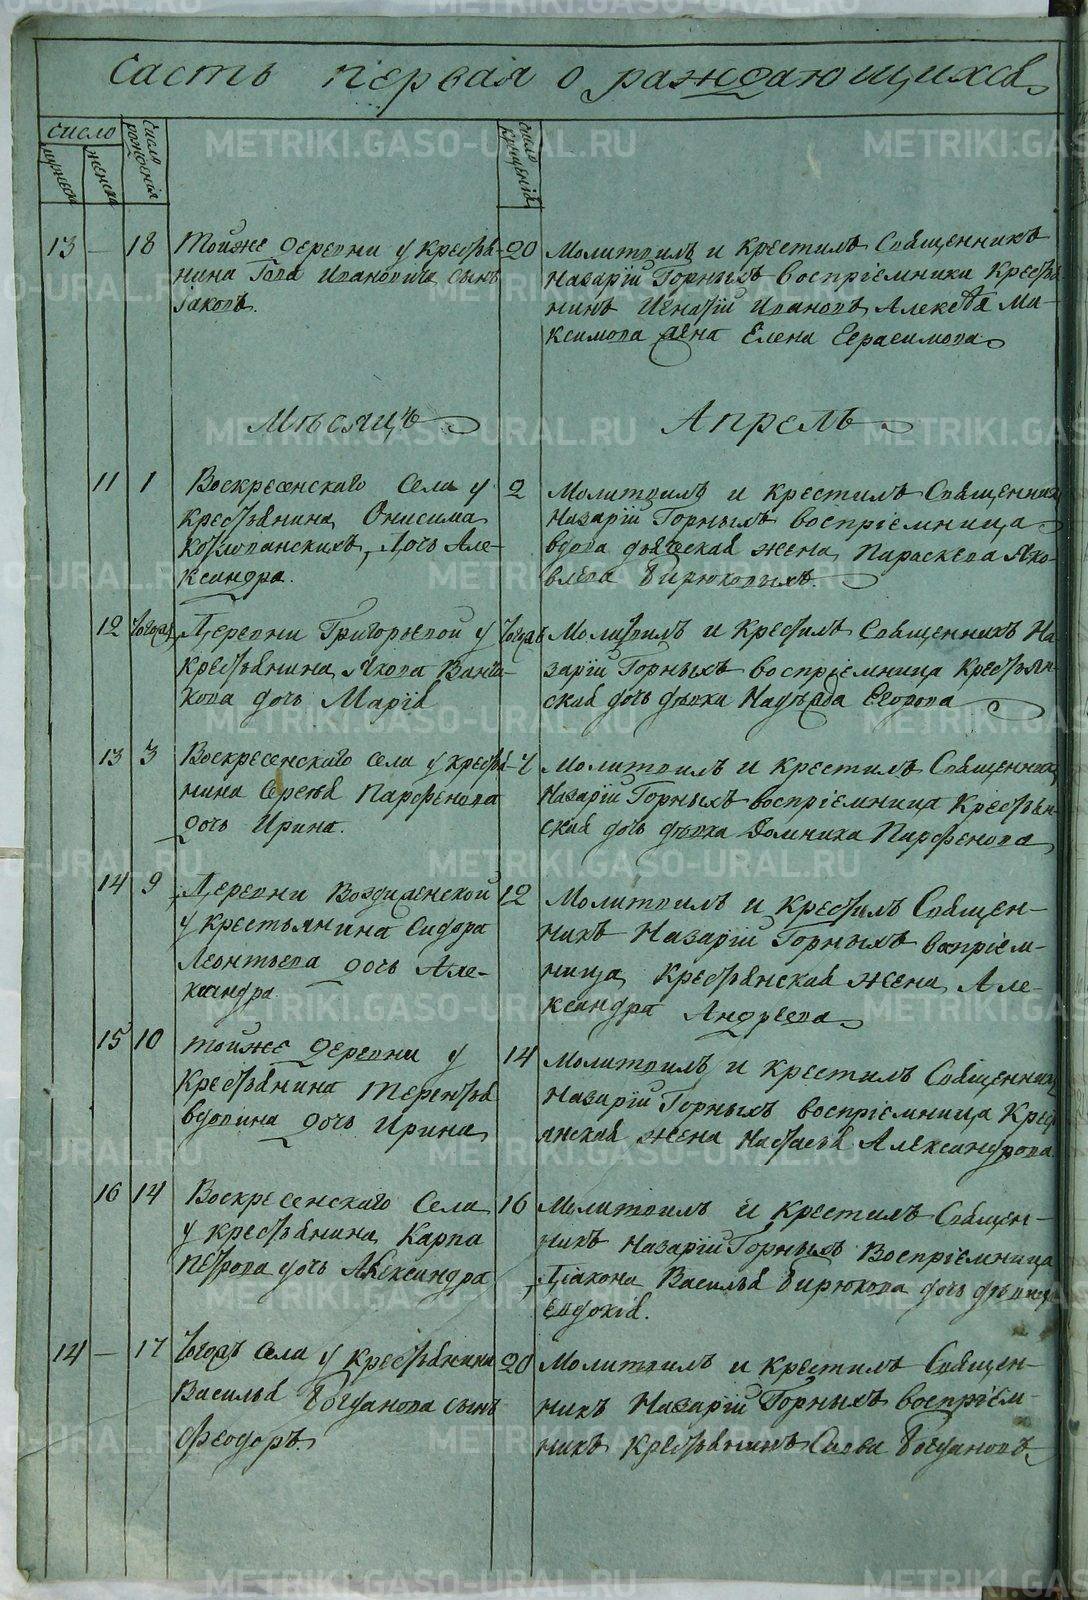 Часть первая о раждающихся
число
мужеска
женска
число рождения
число крещенiя
13 — 18 Тойже деревни у крестья-
нина Iова Иванова сынъ
Iаковъ.
20 Молитвилъ и крестилъ Священникъ
Назарiй Горныхъ воспрiемники Крестья
нинъ Игнатiй Ивановъ, Алексѣя Ма-
ксимова жена Елена Герасимова
Мѣсяцъ Апрель
11 1 Воскресенскаго Села у
крестьянина Онисима
дочь Але-
ксандра.
2 Молитвилъ и крестилъ Священник
Назарiй Горныхъ воспрiемница
вдова дьяческая жена Параскева Яко-
влева Бирюковыхъ.
12 Тогожъ Деревни Григорьевой у
крестьянина Якова Ванча-
кова дочь Марiя
Тогожъ Молитвилъ и крестилъ Священникъ На
зарiй Горныхъ воспрiемница Крестьян-
ская дочь дѣвка Надѣжда Егорова
13 3 Воскресенскаго села у крестья-
нина Сергѣя Парфенова
дочь Ирина.
4 Молитвилъ и крестилъ Священник
Назарiй Горныхъ воспрiемница Крестьян-
ская дочь дѣвка Домника Парфенова
14 9 Деревни Воздвиженской
у крестьянина Сидора
Леонтьева дочь Але-
ксандра
12 Молитвилъ и крестилъ Священ-
никъ Назарiй Горныхъ воспрiем-
ница Крестьянская жена Але-
ксандра Андреева
15 10 Тойже Деревни у
Крестьянина Терентья
Вдовина дочь Ирина
14 Молитвилъ и крестилъ Священник
Назарiй Горныхъ воспрiемница Крест
янская жена Настасья Александрова
16 14 Воскресенскаго Села
у крестьянина Карпа
Петрова дочь Александра
16 Молитвилъ и крестилъ Священ-
никъ Назарiй Горныхъ Воспрiемница
Дiакона Василья Бирюкова дочь дѣвица
Евдокiя.
14 — 17 Тогожъ Села у крестьянина
Василья Богданова сынъ
Феодоръ
20 Молитвилъ и крестилъ Священ-
никъ Назарiй Горныхъ воспрiем-
никъ крестьянинъ Савва Богдановъ
METRIKI.GASO-URAL.RU